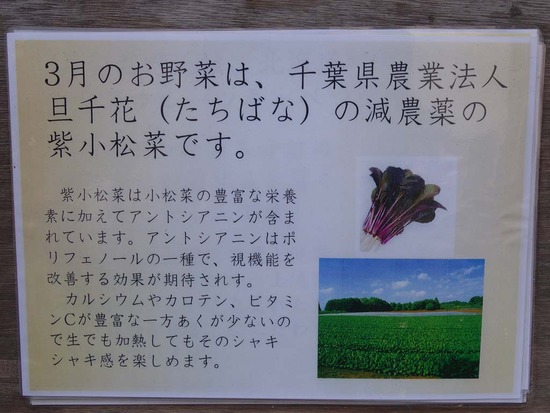 3月のお野菜は、千葉県農業法人
旦千花（たちばな）の減農薬の
紫小松菜です。
紫小松菜は小松菜の豊富な栄養
素に加えてアントシアニンが含ま
れています。アントシアニンはポ
リフェノールの一種で、視機能を
改善する効果が期待されす。
カルシウムやカロテン、ビタミ
ンCが豊富な一方あくが少ないの
で生でも加熱してもそのシャキ
シャキ感を楽しめます。